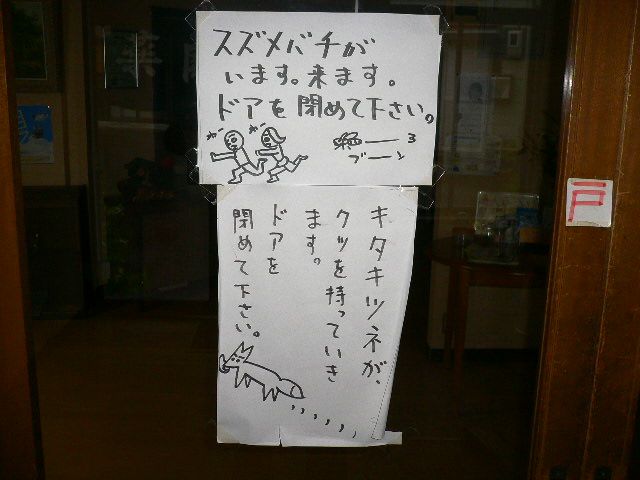 スズメバチが
います。来ます。
ドアを閉めて下さい。
ブーン
キタキツネが、
クツを持っていき
ます。
ドアを
閉めて下さい。
戸